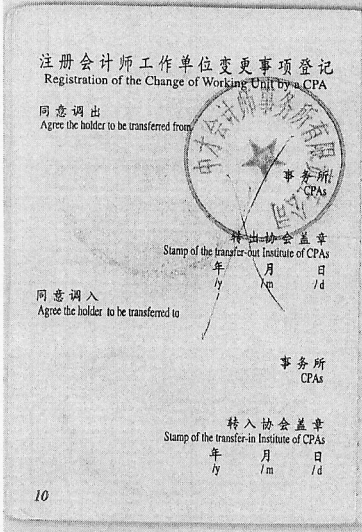 注册会计师工作单位变更事项登记
Registration of the Change of Working Unit by a CPA
同意调出
Agree the holder to be transferred from
中才会计师事务所有限责任公司
事务所
CPAs
转出协会盖章
Stamp of the transfer-out Institute of CPAs
年 月 日
/y /m /d
同意调入
Agree the holder to be transferred to
事务所
CPAs
转入协会盖章
Stamp of the transfer-in Institute of CPAs
年 月 日
/y /m /d
10